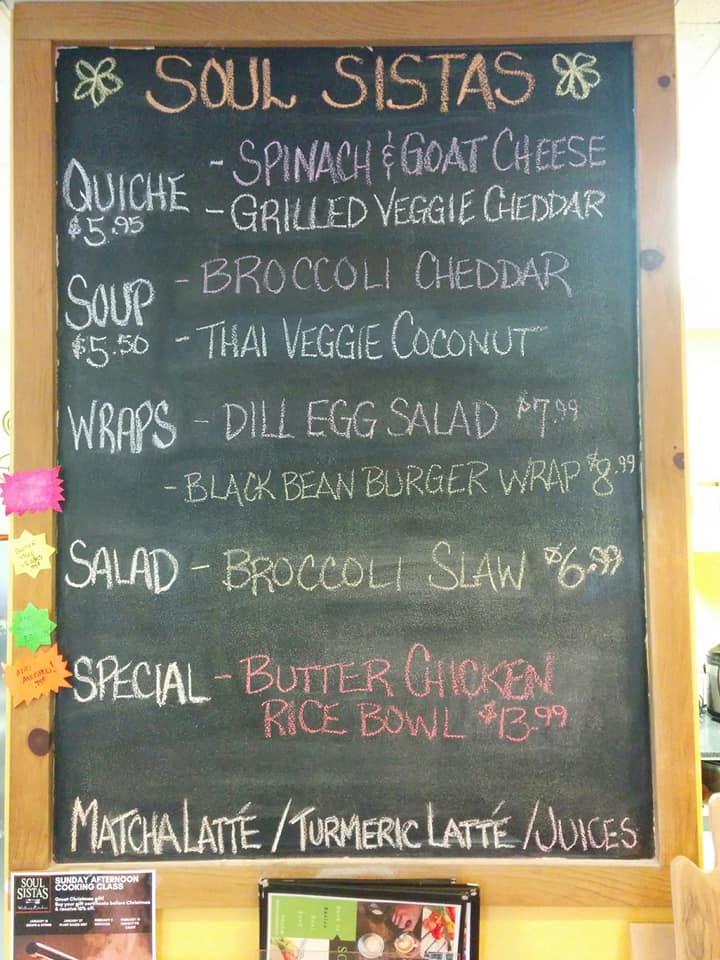 SOUL SISTAS
QUICHE - SPINACH & GOAT CHEESE
$5.95 - GRILLED VEGGIE CHEDDAR
SOUP - BROCCOLI CHEDDAR
$5.50 - THAI VEGGIE COCONUT
WRAPS - DILL EGG SALAD $7.99
- BLACK BEAN BURGER WRAP $8.99
SALAD - BROCCOLI SLAW $6.99
SPECIAL - BUTTER CHICKEN
RICE BOWL $13.99
MATCHA LATTÉ / TURMERIC LATTÉ / JUICES
SOUL SISTAS
SUNDAY AFTERNOON
COOKING CLASS
Great Christmas gift!
Buy your gift certificate before Christmas
& receive 10% off.